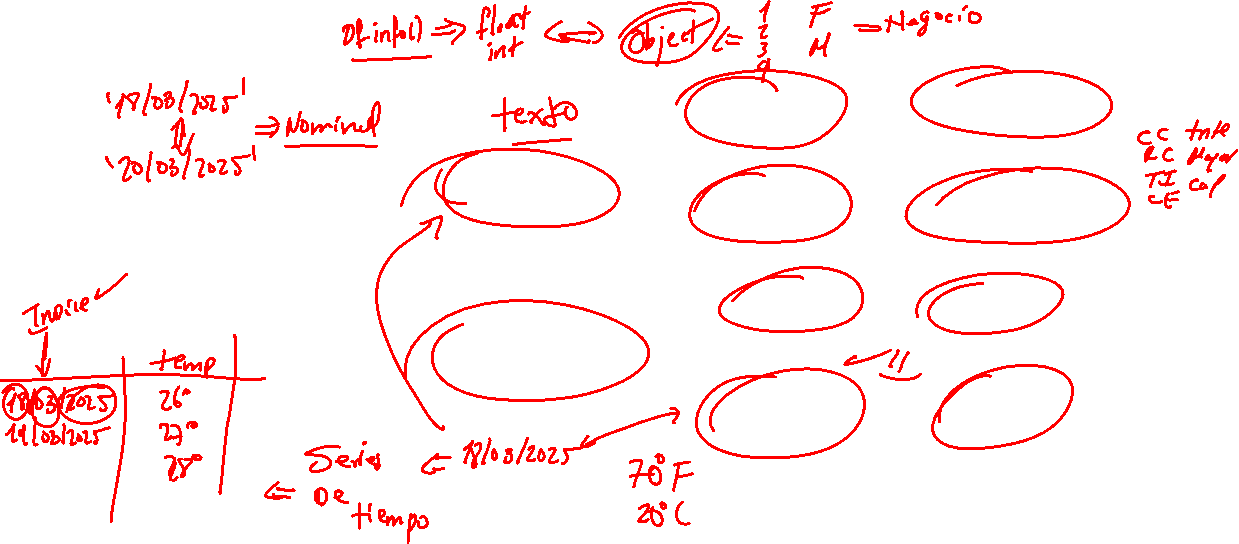 Df info() ⇒ float int ⇔ Object ⇐ 1 2 3 4 F M = Negocio
'18/03/2025'
'20/03/2025'
⇒ Nominal
texto
CC
RC
TI
CE
Indice
temp
18/03/2025 26°
19/03/2025 27°
28°
Series
De
tiempo
⇐ 18/03/2025
70°F
20°C